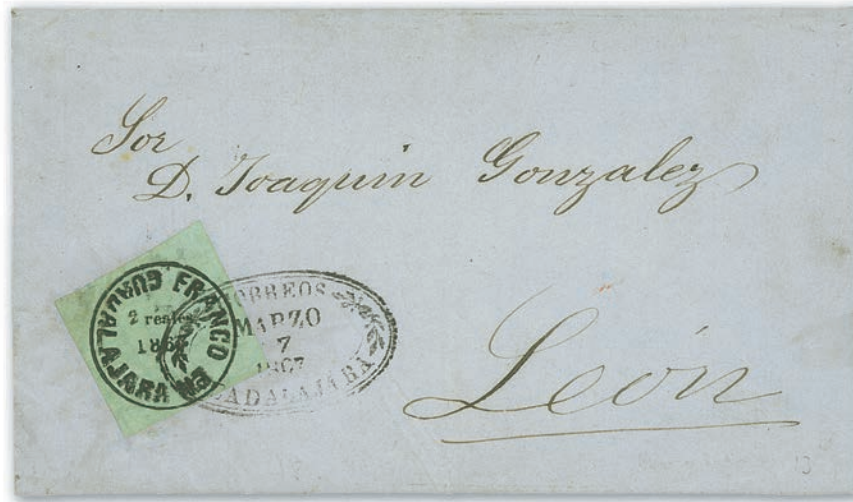 Sor
D. Joaquin Gonzalez
León
FRANCO EN GUADALAJARA
2 reales
CORREOS
MARZO
7
1867
GUADALAJARA